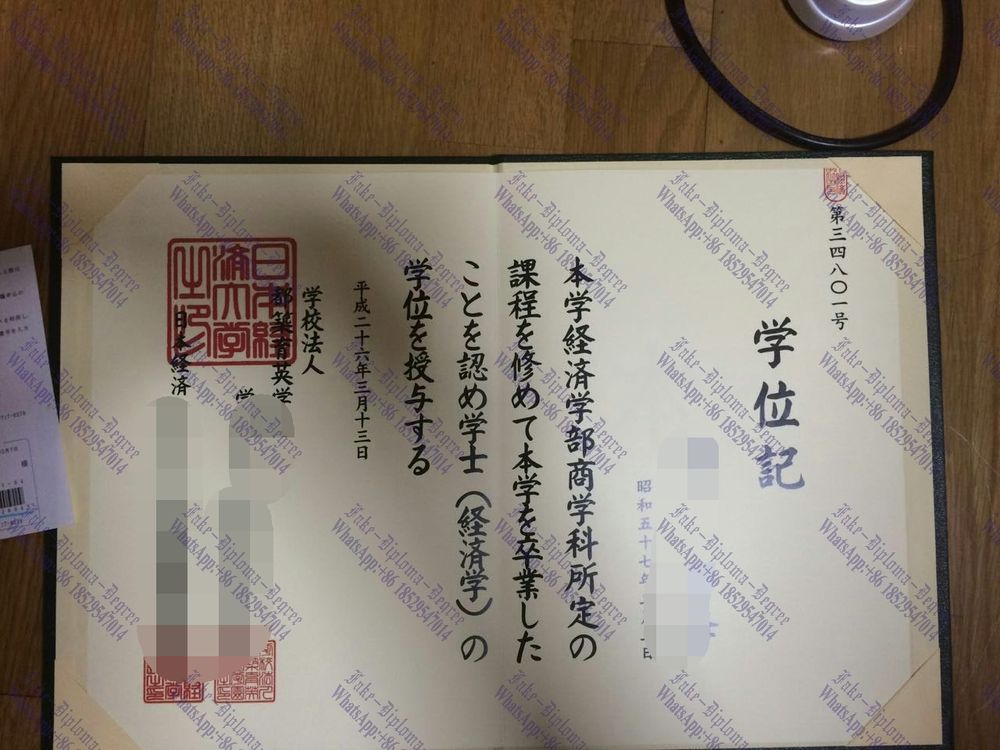 第三四八〇一号
学位記
昭和五十七年
日
本学経済学部商学科所定の
課程を修めて本学を卒業した
ことを認め学士（経済学）の
学位を授与する
平成二十六年三月十三日
学校法人
都築育英学
学
日本経済
日本経済大学之印
様
Fake-Diploma-Degree
WhatsApp:+86 18529547014